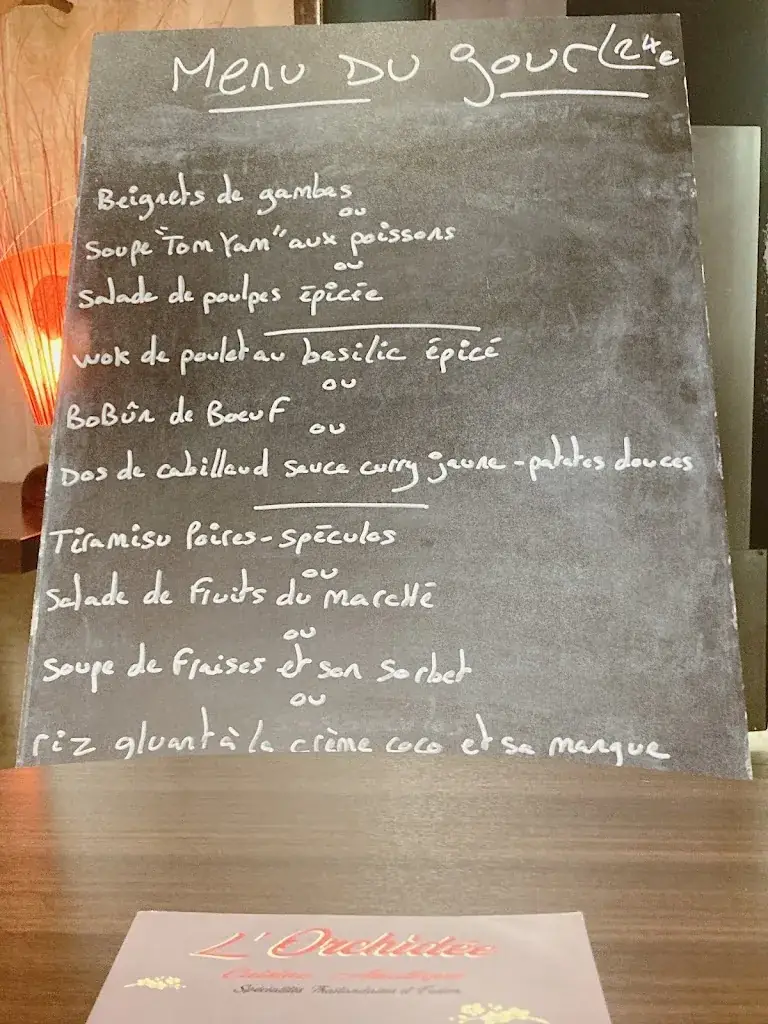 Menu Du jour 24€
Beignets de gambas
ou
Soupe "Tom Yam" aux poissons
ou
Salade de poulpes épicée
wok de poulet au basilic épicé
ou
BoBûn de Boeuf
ou
Dos de cabillaud sauce curry jaune - patates douces
Tiramisu Poires - spéculos
ou
Salade de Fruits du marcHé
ou
Soupe de Fraises et son sorbet
ou
riz gluant à la crème coco et sa mangue
L'Orchidée
Cuisine
Spécialités Thaïlandaises et Fusion